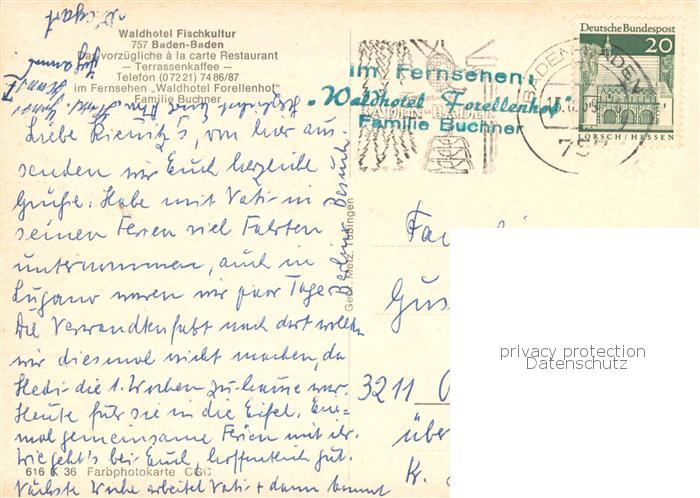 Waldhotel Fischkultur
757 Baden-Baden
Das vorzügliche à la carte Restaurant
— Terrassenkaffee —
Telefon (07221) 7486/87
im Fernsehen „Waldhotel Forellenhof"
Familie Buchner
Im Fernsehen:
„Waldhotel Forellenhof"
Familie Buchner
BADEN-BADEN
BADEN-BADEN
757
Deutsche Bundespost
20
LORSCH/HESSEN
Liebe von hier aus
senden wir Euch herzliche
Grüße. Habe mit Vati in
seinen Ferien viel Fahrten
unternommen, auch in
Lugano waren wir paar Tage.
Die Verwandtenfahrt nach dort wollten
wir diesmal nicht machen, da
Hedi die 1. Wochen zuhause war.
Heute fuhr sie in die Eifel.
mal gemeinsame Ferien mit ihr.
Wie geht's bei Euch, hoffentlich gut.
Nächste Woche arbeitet Vati + dann kommt
Berliner Besuch
Gebr. Metz, Tübingen
616 K 36 Farbphotokarte CGC
Fa
Gus
3211
über
K.
privacy protection
Datenschutz